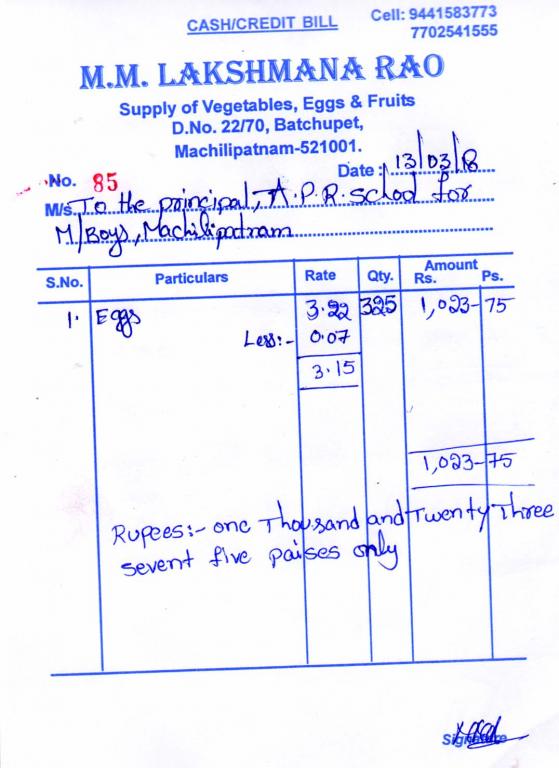 CASH/CREDIT BILL
Cell: 9441583773
7702541555
M.M. LAKSHMANA RAO
Supply of Vegetables, Eggs & Fruits
D.No. 22/70, Batchupet,
Machilipatnam-521001.
No. 85
Date : 13/03/18
M/s To the principal, A.P.R. school for
M/Boys, Machilipatnam
S.No. Particulars Rate Qty. Amount
Rs. Ps.
1. Eggs 3.22 325 1,023-75
Less:- 0.07
3.15
1,023-75
Rupees:- one Thousand and Twenty Three
sevent five paises only
Signature